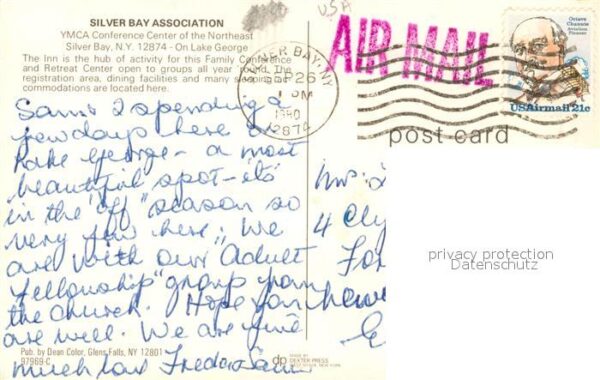 SILVER BAY ASSOCIATION
YMCA Conference Center of the Northeast
Silver Bay, N.Y. 12874 - On Lake George
The Inn is the hub of activity for this Family Conference
and Retreat Center open to groups all year round. The
registration area, dining facilities and many sleeping ac-
commodations are located here.
USA
AIR MAIL
SILVER BAY, NY
SEP 26
PM
1980
12874
Octave Chanute
Aviation Pioneer
USAirmail 21c
post card
Sam & I spending a
few days here on
Lake George - a most
beautiful spot - its
in the "off" season so
very few here. We
are with our "Adult
Fellowship" group from
the Church. Hope you
are well. We are fine
much love Freda & Sam
Mrs.
4 Cly
For
privacy protection
Datenschutz
Pub. by Dean Color, Glens Falls, NY 12801
97969-C
dp
MADE BY
DEXTER PRESS
WEST NYACK, NEW YORK